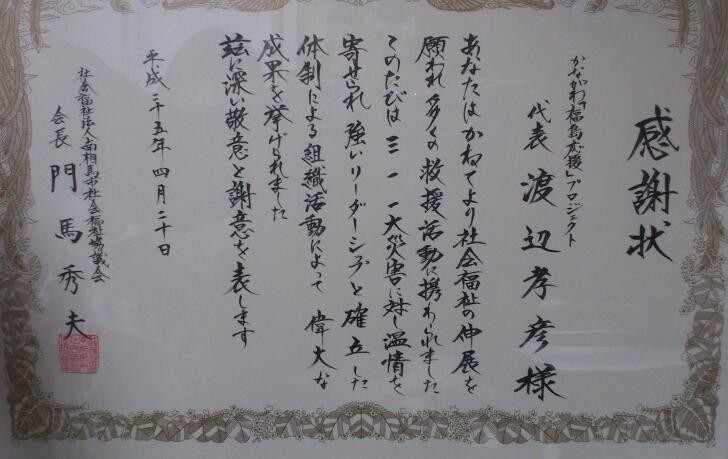 感謝状
かながわ「福島応援」プロジェクト
代表 渡辺孝彦様
あなたはかねてより社会福祉の伸展を
願われ多くの救援活動に携わられました
このたびは三一一大災害に対し温情を
寄せられ 強いリーダーシップと確立した
体制による組織活動によって 偉大な
成果を挙げられました
玆に深い敬意と謝意を表します
平成二十五年四月二十日
社会福祉法人南相馬市社会福祉協議会
会長 門馬秀夫